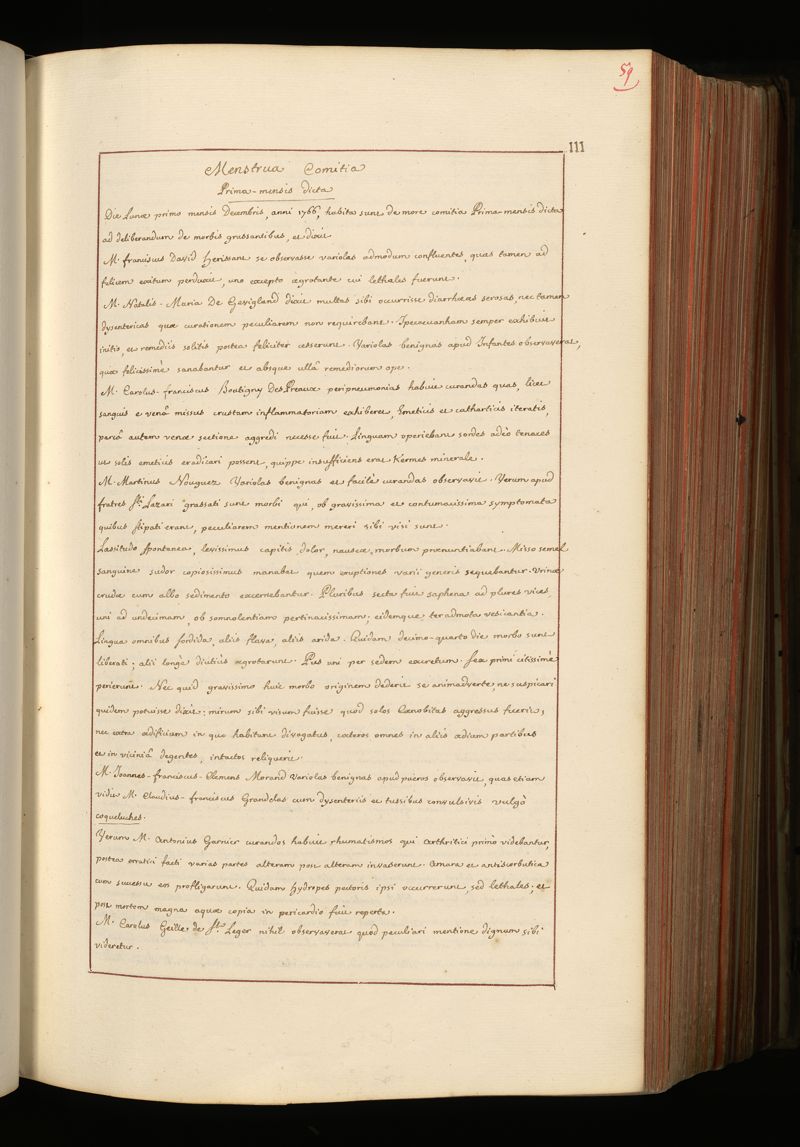 59
111
Menstrua Comitia
Prima-mensis dicta
Die Lunæ primo mensis Decembris, anni 1766, habita sunt de more comitia Prima-mensis dicta
ad deliberandum de morbis grassantibus, et dixit
M. franciscus David Herissant se observasse variolas admodum confluentes, quas tamen ad
felicem exitum perduxit, uno excepto ægrotante cui lethales fuerunt.
M. Natalis-Maria De Gevigland dixit multas sibi occurrisse diarrhæas serosas, nec tamen
dysentericas quæ curationem peculiarem non requirebant. Ipecacuanham semper exhibuit
initio, et remediis solitis postea feliciter cesserunt. Variolas benignas apud Infantes observaverat,
quæ felicissimè sanabantur et absque ullâ remediorum ope.
M. Carolus-franciscus Boutigny DesPreaux peripneumonias habuit curandas quas, licet
sanguis e venâ missus crustam inflammatoriam exhiberet, Emeticis et catharticis iteratis,
parcâ autem venæ sectione aggredi necesse fuit. Linguam operiebant sordes adeò tenaces
ut solis emeticis eradicari possent, quippe insufficiens erat Kermes minerale.
M. Martinus Nouguez Variolas benignas et facilè curandas observavit. Verum apud
fratres Sti. Lazari grassati sunt morbi qui, ob gravissima et contumacissima symptomata
quibus stipati erant, peculiarem mentionem mereri sibi visi sunt.
Lassitudo spontanea, levissimus capitis dolor, nauseæ, morbum prænuntiabant. Misso semel
sanguine sudor copiosissimus manabat quem eruptiones varii generis sequebantur. Urinæ
crudæ cum albo sedimento excernebantur. Pluribus secta fuit saphena ad plures vices,
uni ad undecimam, ob somnolentiam pertinacissimam; eidemque ter admota vesicantia.
Lingua omnibus sordida, aliis flava, aliis arida. Quidam decimo-quarto die morbo sunt
liberati; alii longè diutiùs ægrotarunt. Pus uni per sedem excretum. Sex primi citissimè
perierunt. Nec quid gravissimo huic morbo originem dederit se animadverte, ne suspicari
quidem potuisse dixit: mirum sibi visum fuisse quod solos Cœnobitas aggressus fuerit,
nec extra ædificium in quo habitant divagatus, cæteros omnes in aliis ædium partibus
et in viciniâ degentes, intactos reliquerit.
M. Joannes-franciscus-Clemens Morand Variolas benignas apud pueros observavit, quas etiam
vidit M. Claudius-franciscus Grandelas cum dysenteriis et tussibus convulsivis vulgò
coqueluches.
Verum M. Antonius Garnier curandos habuit rhumatismos qui Arthritici primò videbantur,
postea erratici facti varias partes alteram post alteram invaserunt. Amara et antiscorbutica
cum successu eos profligarunt. Quidam hydropes pectoris ipsi occurrerunt, sed lethales; et
post mortem magna aquæ copia in pericardio fuit reperta.
M. Carolus Geille de St. Leger nihil observaverat quod peculiari mentione dignum sibi
videretur.